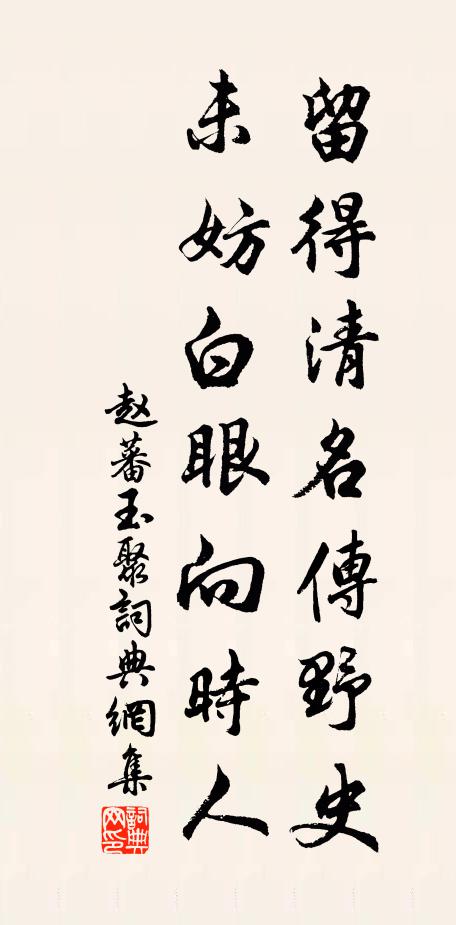 留得清名傳野史
未妨白眼向時人
赵蕃玉聚詞典網集
詞典網印